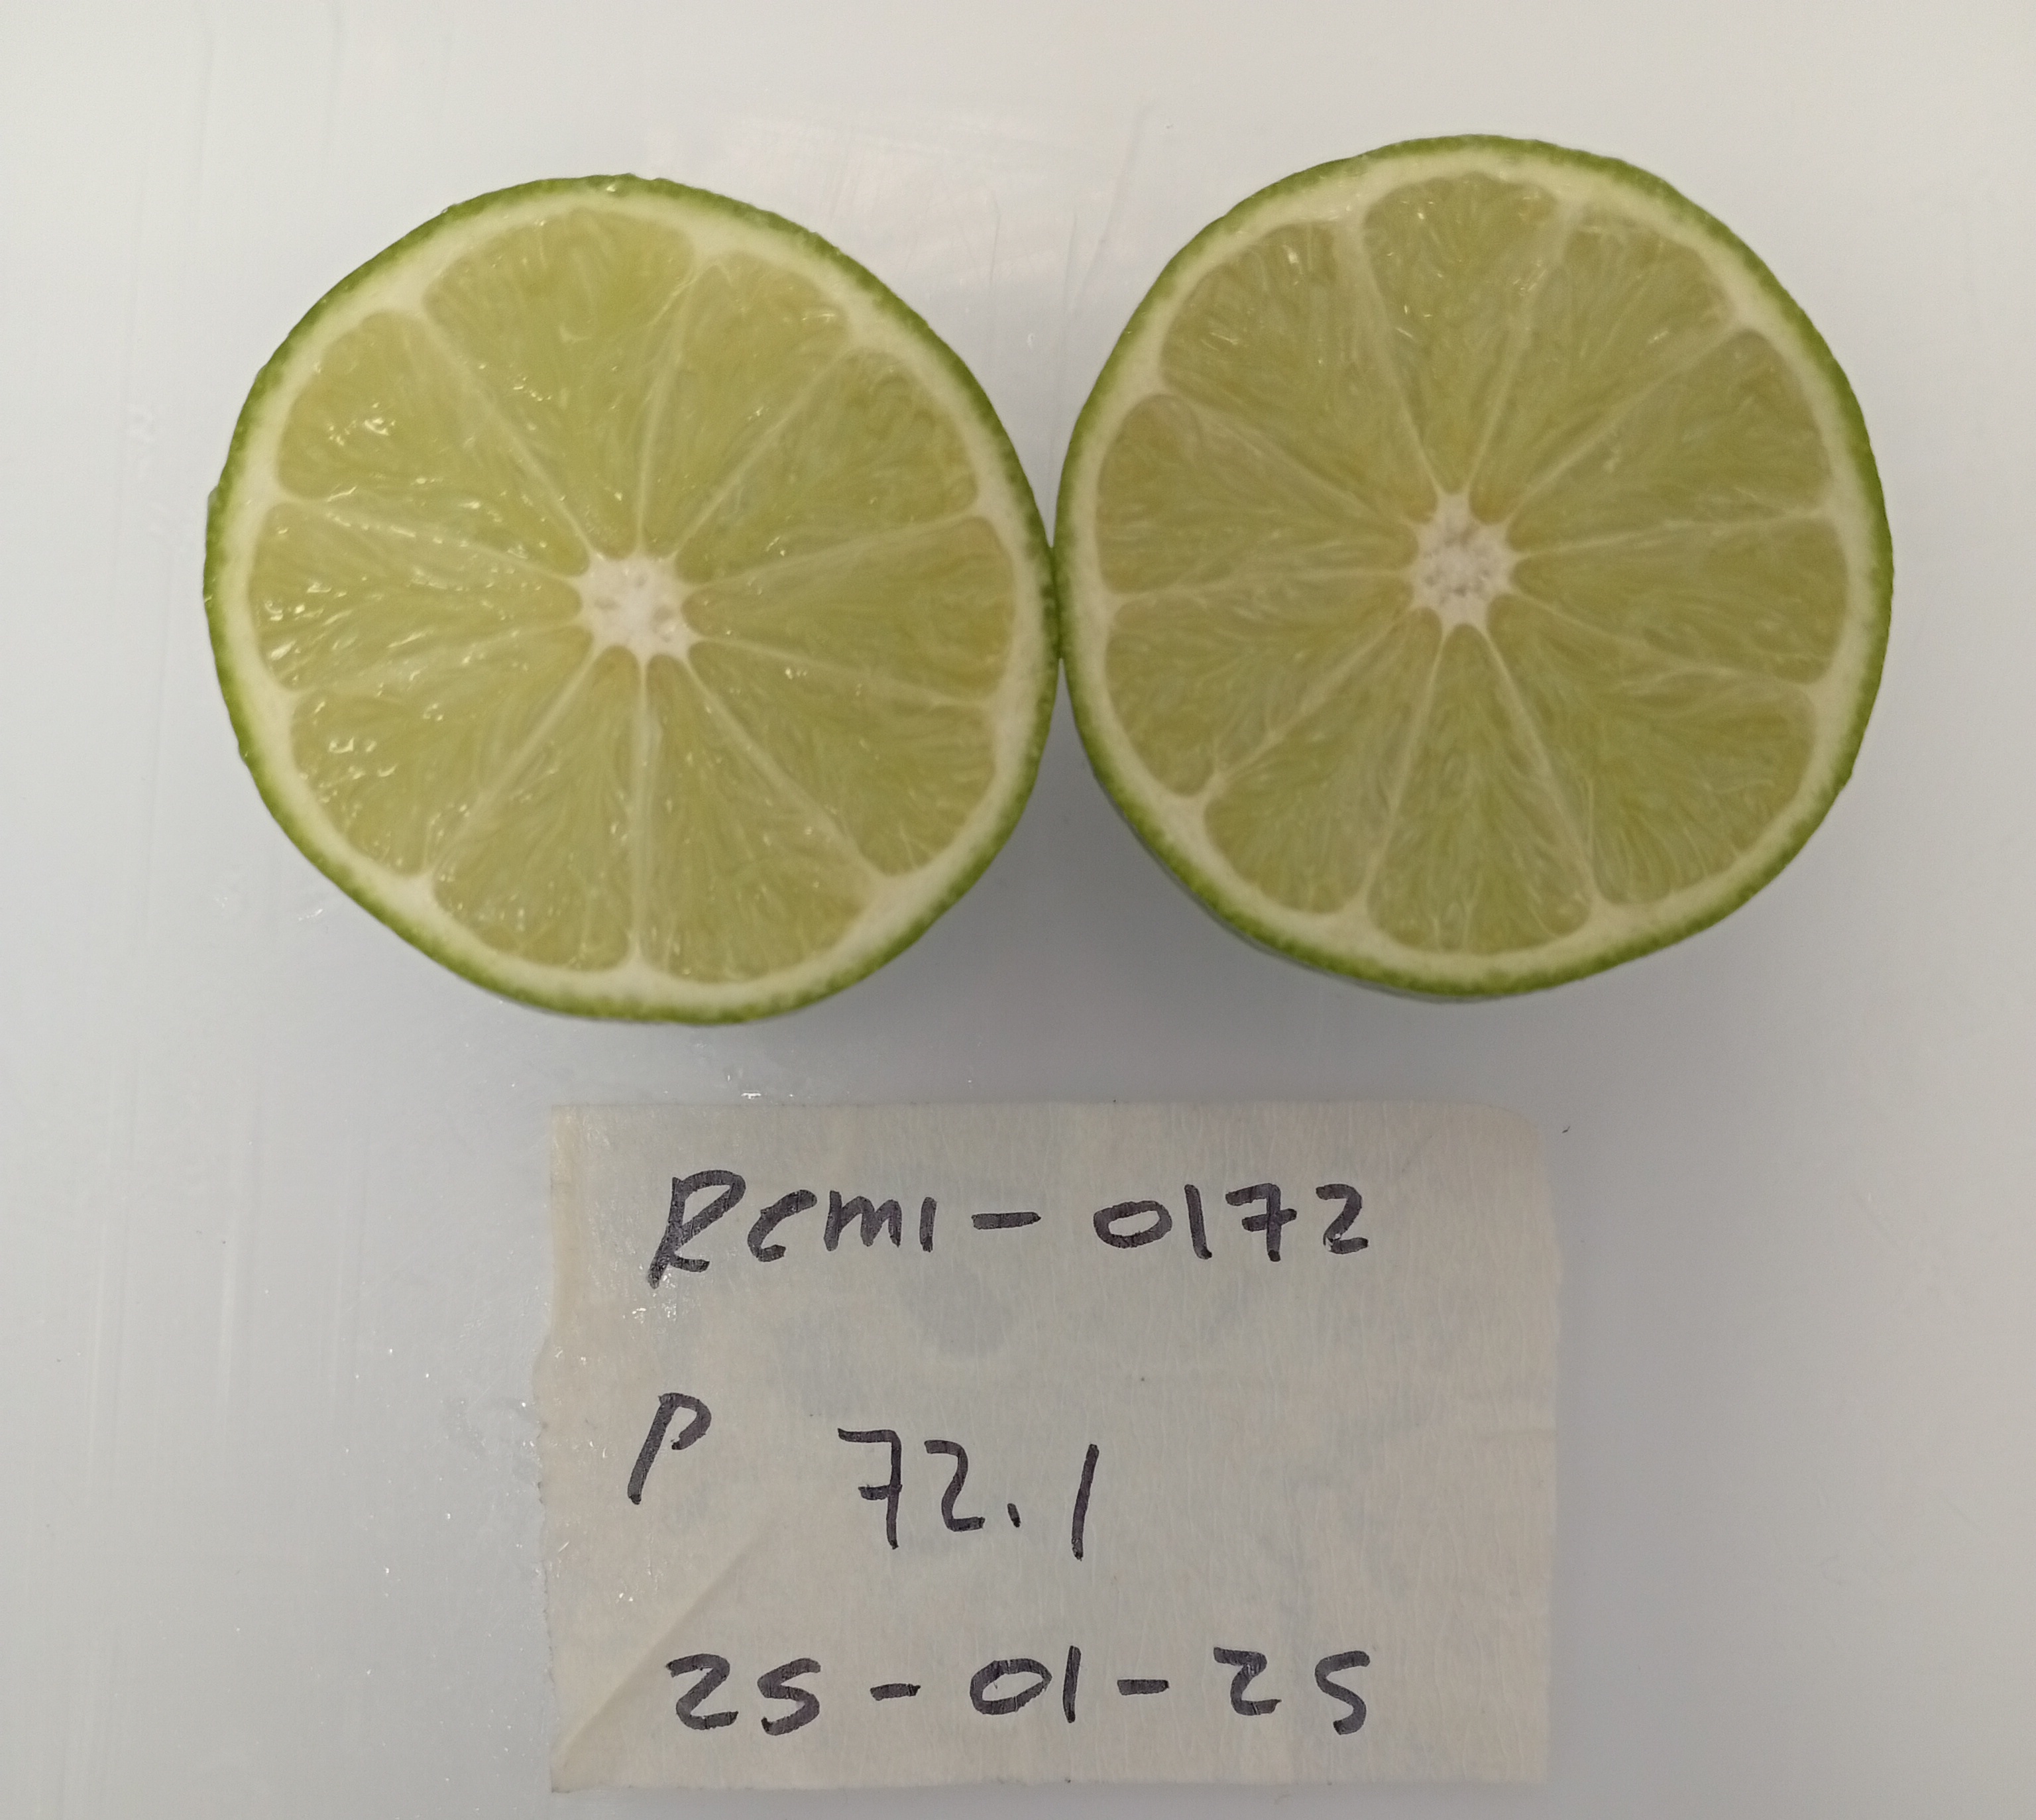 Remi - 0172
P 72.1
25-01-25